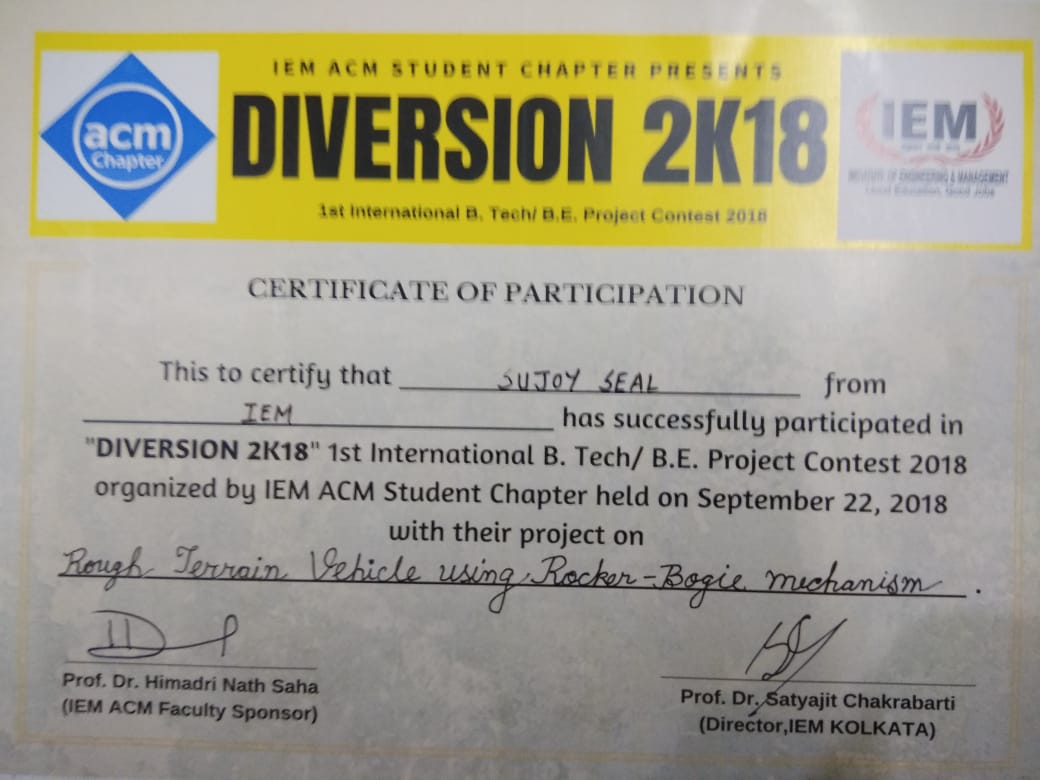 IEM ACM STUDENT CHAPTER PRESENTS
acm
Chapter
DIVERSION 2K18
IEM
INSTITUTE OF ENGINEERING & MANAGEMENT
Good Education, Good Jobs
1st International B. Tech/ B.E. Project Contest 2018
CERTIFICATE OF PARTICIPATION
This to certify that SUJOY SEAL from
IEM has successfully participated in
"DIVERSION 2K18" 1st International B. Tech/ B.E. Project Contest 2018
organized by IEM ACM Student Chapter held on September 22, 2018
with their project on
Rough Terrain Vehicle using Rocker-Bogie mechanism.
Prof. Dr. Himadri Nath Saha
(IEM ACM Faculty Sponsor)
Prof. Dr. Satyajit Chakrabarti
(Director,IEM KOLKATA)